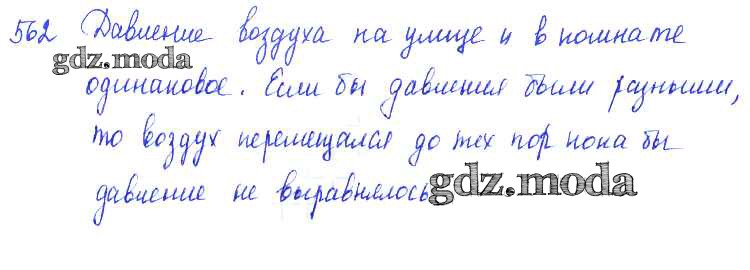 562 Давление воздуха на улице и в комнате
gdz.moda
одинаковое. Если бы давления были разными,
то воздух перемещался до тех пор пока бы
давление не выравнялось
gdz.moda